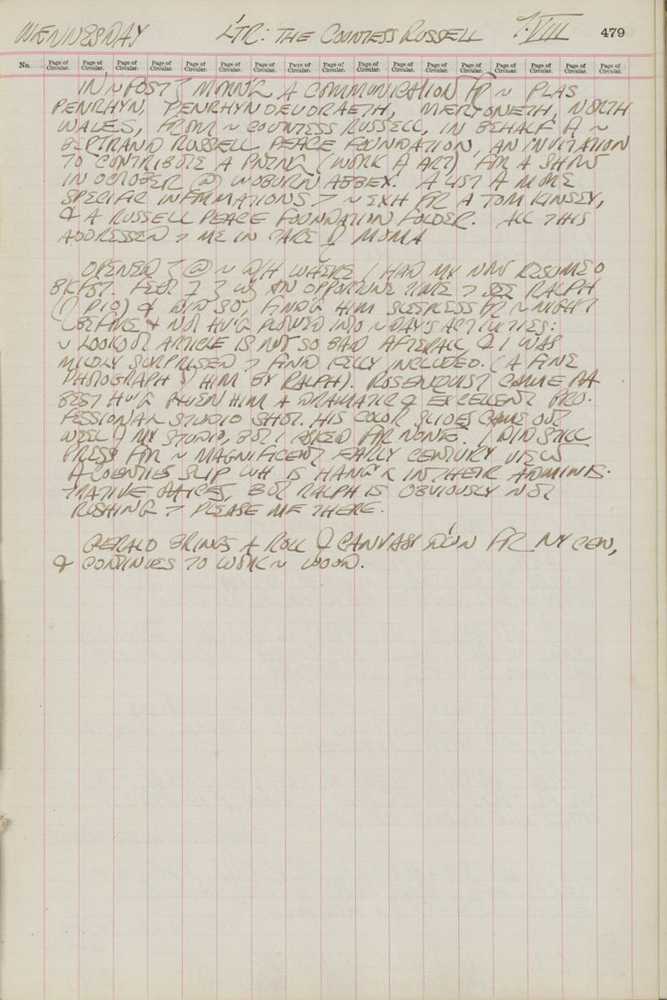 WENNESDAY L'TR: THE COUNTESS RUSSELL 7.VIII 479
No. Page of Circular. Page of Circular. Page of Circular. Page of Circular. Page of Circular. Page of Circular. Page of Circular. Page of Circular. Page of Circular. Page of Circular. Page of Circular. Page of Circular. Page of Circular. Page of Circular. Page of Circular. Page of Circular. Page of Circular.
IN ~ POST A COMMUNICATION FR ~ PLAS
PENRHYN, PENRHYNDEUDRAETH, MERIONETH, NORTH
WALES, FROM ~ COUNTESS RUSSELL, IN BEHALF ~
BERTRAND RUSSELL PEACE FOUNDATION, AN INVITATION
TO CONTRIBUTE A (WORK ART) FR A SHOW
IN OCTOBER @ WOBURN ABBEY. A LIST MORE
SPECIFIC INFORMATIONS ~ EXH FR A TOM KINSEY,
& A RUSSELL PEACE FOUNDATION FOLDER. ALL THIS
ADDRESSED ME IN CARE MOMA
OPENED @ ~ WHERE I HAD MY RESUMED
BKFST. FELT AN OPPORTUNE TIME SEE RALPH
& FIND'G HIM SLEEPLESS FR ~ NIGHT
BEFORE & NOT HV'G PLOWED INTO ~ DAY'S ACTIVITIES:
~ LOOK ARTICLE IS NOT SO BAD AFTERALL & I WAS
MILDLY SURPRISED FIND KELLY INCLUDED. (A FINE
PHOTOGRAPH HIM BY RALPH). ROSENQUIST CAME
BEST HV'G GIVEN HIM A DRAMATIC & EXCELLENT PRO-
FESSIONAL STUDIO SHOT. HIS COLOR SLIDES CAME OUT
WELL MY STUDIO, BUT I ASKED FR NONE. I DID STILL
PRESS FOR ~ MAGNIFICENT EARLY CENTURY VIEW
COENTIES SLIP WH IS HANG'G IN THEIR ADMINIS-
TRATIVE OFFICES, BUT RALPH IS OBVIOUSLY NOT
RUSHING PLEASE ME THERE.
GERALD BRINGS A ROLL CANVASS DOWN FR NY CEN,
& CONTINUES TO WORK ~ WOOD.